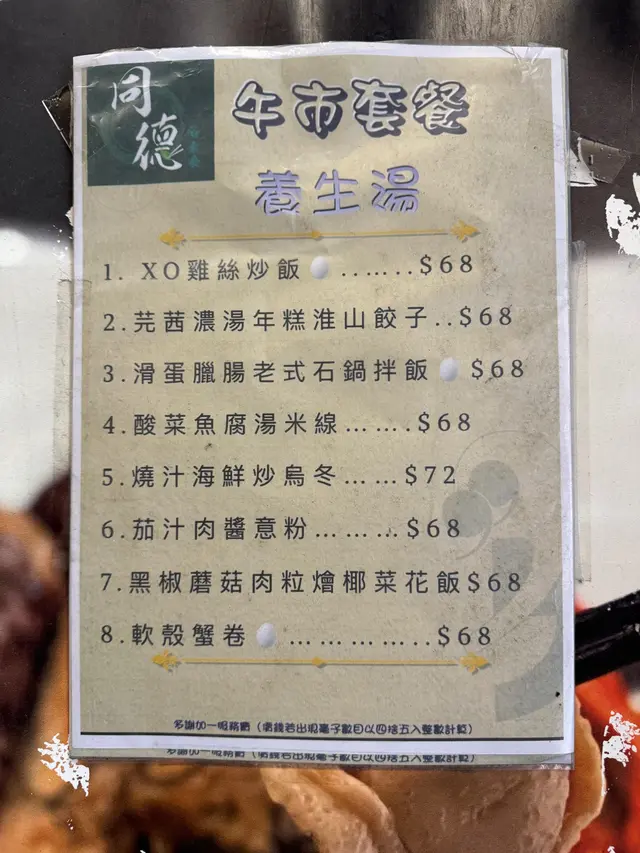 同德
午市套餐
養生湯
1. XO雞絲炒飯 .......$68
2.芫茜濃湯年糕淮山餃子..$68
3.滑蛋臘腸老式石鍋拌飯 $68
4.酸菜魚腐湯米線.......$68
5.燒汁海鮮炒烏冬......$72
6.茄汁肉醬意粉.........$68
7.黑椒蘑菇肉粒燴椰菜花飯$68
8.軟殼蟹卷 ............$68
多謝加一服務費 (價錢若出現毫子數目以四捨五入整數計算)
多謝加一服務費 (價錢若出現毫子數目以四捨五入整數計算)